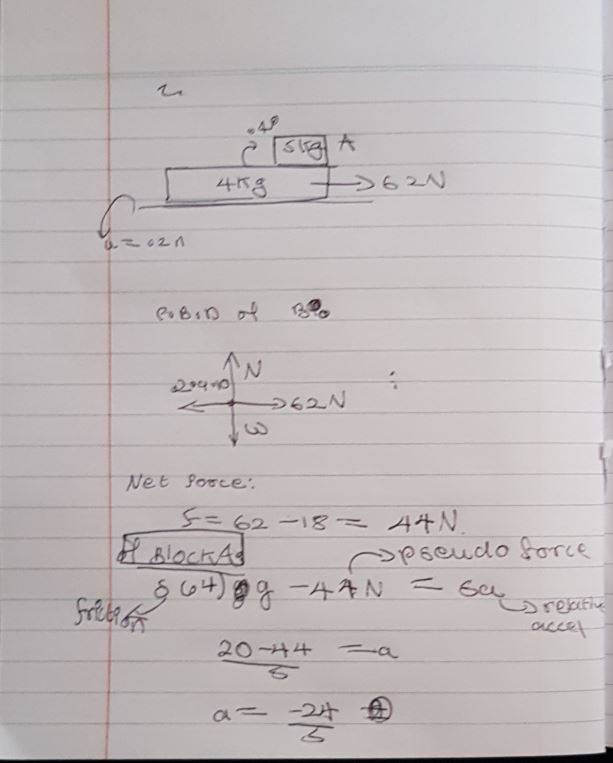 2.
.4
5kg A
4kg → 62N
F.B.D of B
N
← → 62N
W
Net force:
F = 62 - 18 = 44N.
of Block A → pseudo force
5(.4)g - 44N = 5a → relative accel
friction
20-44/5 = a
a = -24/5